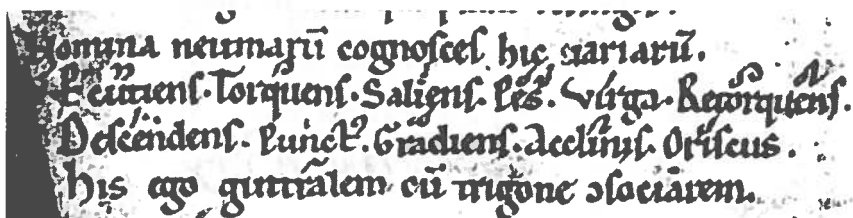 Nomina neumarū cognoſces hic uariarū.
Torquenſ. Salienſ. Peſ. Virga. Retorquenſ.
Deſcendenſ. Punctꝰ. Gradienſ. Acclinis. Oriſcus.
his ego cū trigone ↄsociarem.